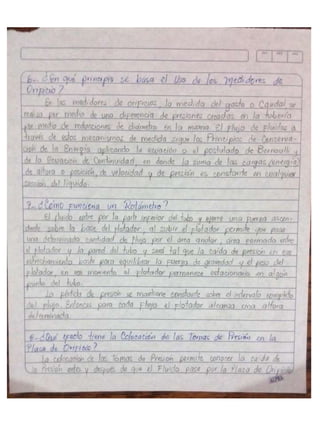 6.- ¿En qué principio se basa el Uso de los Medidores de
Orificio?
En los medidores de orificios, la medida del gasto o Caudal se
realiza por medio de una diferencia de presiones creadas en la tubería
por medio de reducciones de diámetro en la misma. El flujo de fluidos a
través de estos mecanismos de medida sigue los Principios de Conserva-
ción de la Energía aplicando la ecuación o el postulado de Bernoulli y
de la Ecuación de Continuidad, en donde la suma de las cargas/energía
de altura o posición, de velocidad y de presión es constante en cualquier
sección del líquido.
7.- ¿Cómo funciona un Rotámetro?
El fluido entra por la parte inferior del tubo y ejerce una fuerza ascen-
dente sobre la base del flotador; al subir el flotador permite que pase
una determinada cantidad de flujo por el área anular, área formada entre
el flotador y la pared del tubo y será tal que la caída de presión en ese
estrechamiento baste para equilibrar la fuerza de gravedad y el peso del
flotador, en ese momento el flotador permanece estacionario en algún
punto del tubo.
La pérdida de presión se mantiene constante sobre el intervalo completo
del flujo. Entonces para cada flujo, el flotador alcanza una altura
determinada.
8.- ¿Qué efecto tiene la Colocación de las Tomas de Presión en la
Placa de Orificio?
La colocación de las Tomas de Presión permite conocer la caída de
la Presión antes y después de que el Fluido pase por la Placa de Orificio